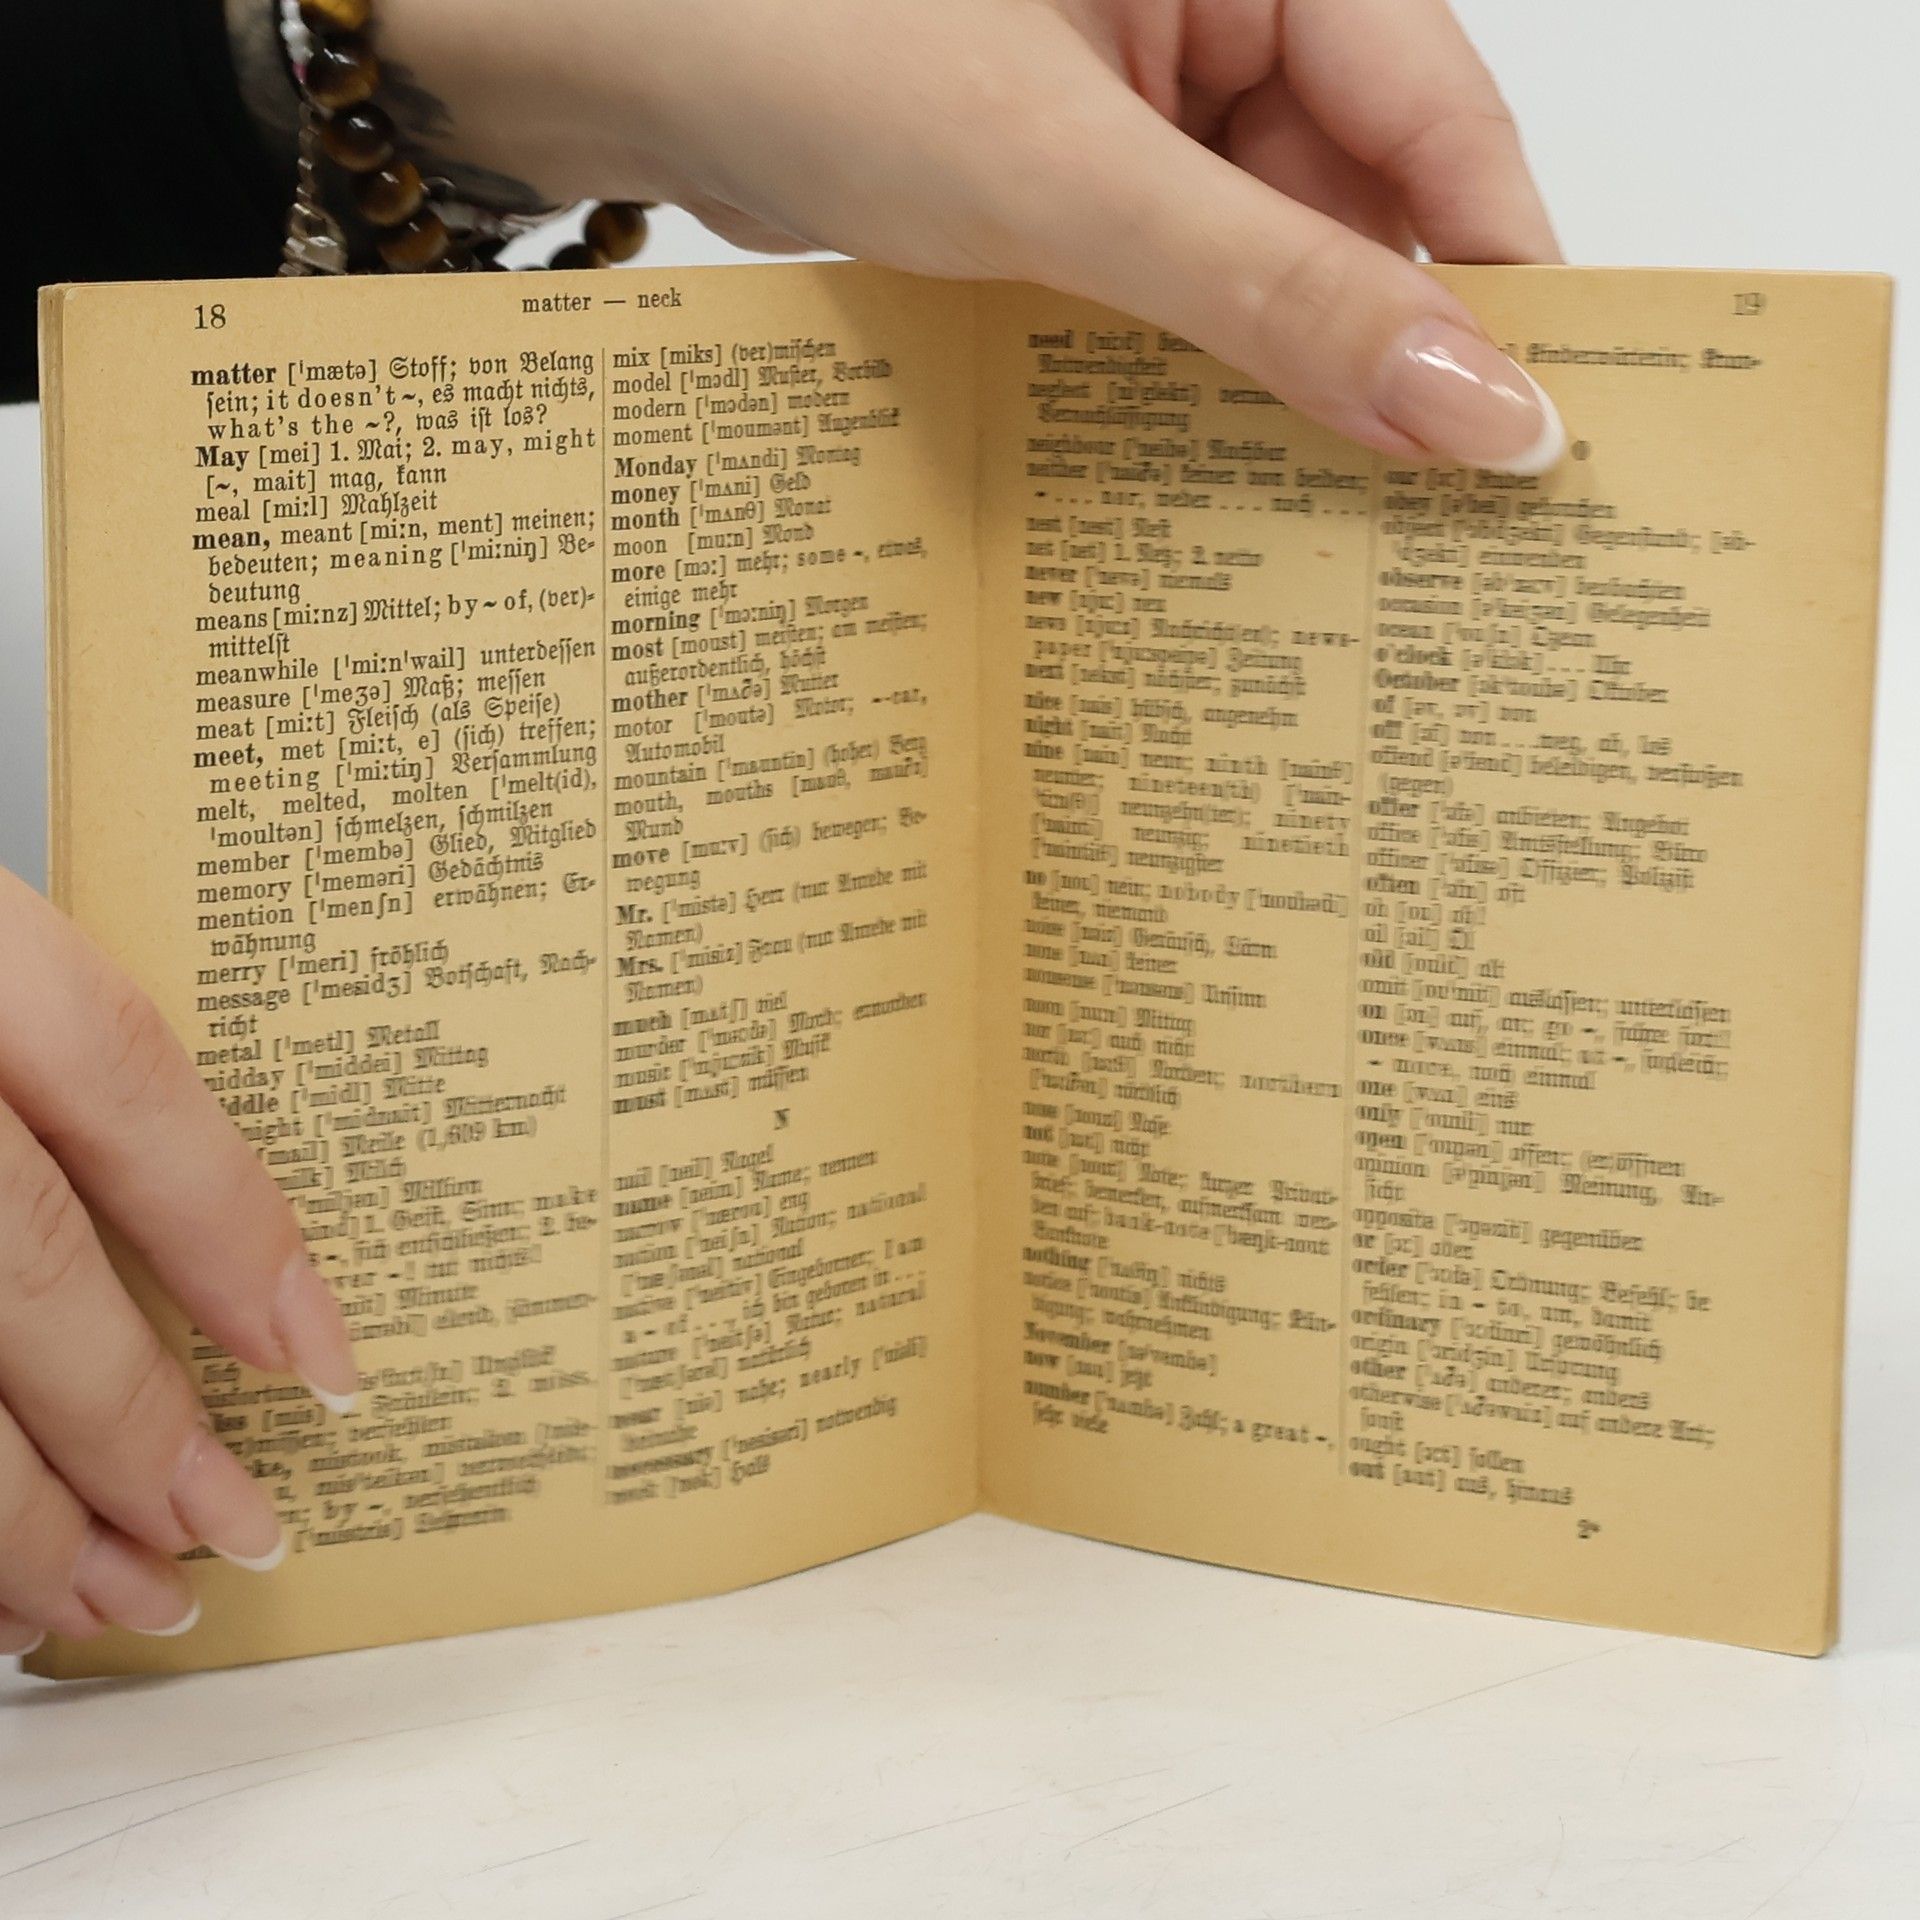 18
matter — neck
matter [ˈmætə] Stoff; von Belang
sein; it doesn't ~, es macht nichts,
what's the ~?, was ist los?
May [mei] 1. Mai; 2. may, might
[~, mait] mag, kann
meal [miːl] Mahlzeit
mean, meant [miːn, ment] meinen;
bedeuten; meaning [ˈmiːniŋ] Be-
deutung
means [miːnz] Mittel; by ~ of, (ver)-
mittelst
meanwhile [ˈmiːnˈwail] unterdessen
measure [ˈmeʒə] Maß; messen
meat [miːt] Fleisch (als Speise)
meet, met [miːt, e] (sich) treffen;
meeting [ˈmiːtiŋ] Versammlung
melt, melted, molten [ˈmelt(id),
ˈmoultən] schmelzen, schmilzen
member [ˈmembə] Glied, Mitglied
memory [ˈmeməri] Gedächtnis
mention [ˈmenʃn] erwähnen; Er-
wähnung
merry [ˈmeri] fröhlich
message [ˈmesidʒ] Botschaft, Nach-
richt
metal [ˈmetl] Metall
[ˈmiddei] Mittag
[ˈmidl] Mitte
[ˈmidnait] Mitternacht
[mail] Meile (1,609 km)
Milch
[ˈmiljən] Million
1. Geist, Sinn; make
sich entschließen; 2.
Minute
elend,
Unglück
[mis] Fräulein; 2. miss,
verfehlen
mistook, mistaken
by ~, versehentlich
[ˈmistris] Lehrerin
mix [miks] (ver)mischen
model [ˈmɔdl] Muster, Vorbild
modern [ˈmɔdən] modern
moment [ˈmoumənt] Augenblick
Monday [ˈmʌndi] Montag
money [ˈmʌni] Geld
month [ˈmʌnθ] Monat
moon [muːn] Mond
more [mɔː] mehr; some ~, etwas,
einige mehr
morning [ˈmɔːniŋ] Morgen
most [moust] meisten; am meisten;
außerordentlich, höchst
mother [ˈmʌðə] Mutter
motor [ˈmoutə] Motor; ~-car,
Automobil
mountain [ˈmauntin] (hoher) Berg
mouth, mouths [mauθ, mauðz]
Mund
move [muːv] (sich) bewegen; Be-
wegung
Mr. [ˈmistə] Herr (nur Anrede mit
Namen)
Mrs. [ˈmisiz] Frau (nur Anrede mit
Namen)
much [mʌtʃ] viel
murder [ˈməːdə] Mord; ermorden
music [ˈmjuːzik] Musik
must [mʌst] müssen
N
nail [neil] Nagel
name [neim] Name; nennen
narrow [ˈnærou] eng
nation [ˈneiʃn] Nation; national
[ˈnæʃənəl] national
native [ˈneitiv] Eingeborner; I am
a ~ of ..., ich bin geboren in ...
nature [ˈneitʃə] Natur; natural
[ˈnætʃərəl] natürlich
near [niə] nahe; nearly [ˈniəli]
beinahe
necessary [ˈnesisəri] notwendig
neck [nek] Hals
19
need [niːd]
Notwendigkeit
neglect
Vernachlässigung
neighbour [ˈneibə] Nachbar
neither [ˈnaiðə] keiner von beiden;
~ ... nor, weder ... noch ...
nest [nest] Nest
net [net] 1. Netz; 2. netto
never [ˈnevə] niemals
new [njuː] neu
news [njuːz] Nachricht(en); news-
paper [ˈnjuːspeipə] Zeitung
next [nekst] nächster; zunächst
nice [nais] hübsch, angenehm
night [nait] Nacht
nine [nain] neun; ninth [nainθ]
neunter; nineteen(th) [ˈnain-
ˈtiːn(θ)] neunzehn(ter); ninety
[ˈnainti] neunzig; ninetieth
[ˈnaintiiθ] neunzigster
no [nou] nein; nobody [ˈnoubədi]
keiner, niemand
noise [nɔiz] Geräusch, Lärm
none [nʌn] keiner
nonsense [ˈnɔnsəns] Unsinn
noon [nuːn] Mittag
nor [nɔː] auch nicht
north [nɔːθ] Norden; northern
[ˈnɔːðən] nördlich
nose [nouz] Nase
not [nɔt] nicht
note [nout] Note; kurzer Privat-
brief; bemerken, aufmerksam wer-
den auf; bank-note [ˈbæŋk-nout]
Banknote
nothing [ˈnʌθiŋ] nichts
notice [ˈnoutis] Ankündigung; Kün-
digung; wahrnehmen
November [nəˈvembə]
now [nau] jetzt
number [ˈnʌmbə] Zahl; a great ~,
sehr viele
Kinderwärterin;
O
oar [ɔː] Ruder
obey [əˈbei] gehorchen
object [ˈɔbdʒikt] Gegenstand; [əb-
ˈdʒekt] einwenden
observe [əbˈzəːv] beobachten
occasion [əˈkeiʒən] Gelegenheit
ocean [ˈouʃn] Ozean
o'clock [əˈklɔk] ... Uhr
October [ɔkˈtoubə] Oktober
of [əv, ɔv] von
off [ɔːf] von ... weg, ab, los
offend [əˈfend] beleidigen, verstoßen
(gegen)
offer [ˈɔfə] anbieten; Angebot
office [ˈɔfis] Amtsstellung; Büro
officer [ˈɔfisə] Offizier; Polizist
often [ˈɔːfn] oft
oh [ou] oh!
oil [ɔil] Öl
old [ould] alt
omit [ouˈmit] auslassen; unterlassen
on [ɔn] auf, an; go ~,
once [wʌns] einmal; at ~,
~ more, noch einmal
one [wʌn] eins
only [ˈounli] nur
open [ˈoupən] offen; (er)öffnen
opinion [əˈpinjən] Meinung, An-
sicht
opposite [ˈɔpəzit] gegenüber
or [ɔː] oder
order [ˈɔːdə] Ordnung; Befehl; be
fehlen; in ~ to, um, damit
ordinary [ˈɔːdinri] gewöhnlich
origin [ˈɔridʒin] Ursprung
other [ˈʌðə] anderer; anders
otherwise [ˈʌðəwaiz] auf andere Art;
sonst
ought [ɔːt] sollen
out [aut] aus, hinaus
2*